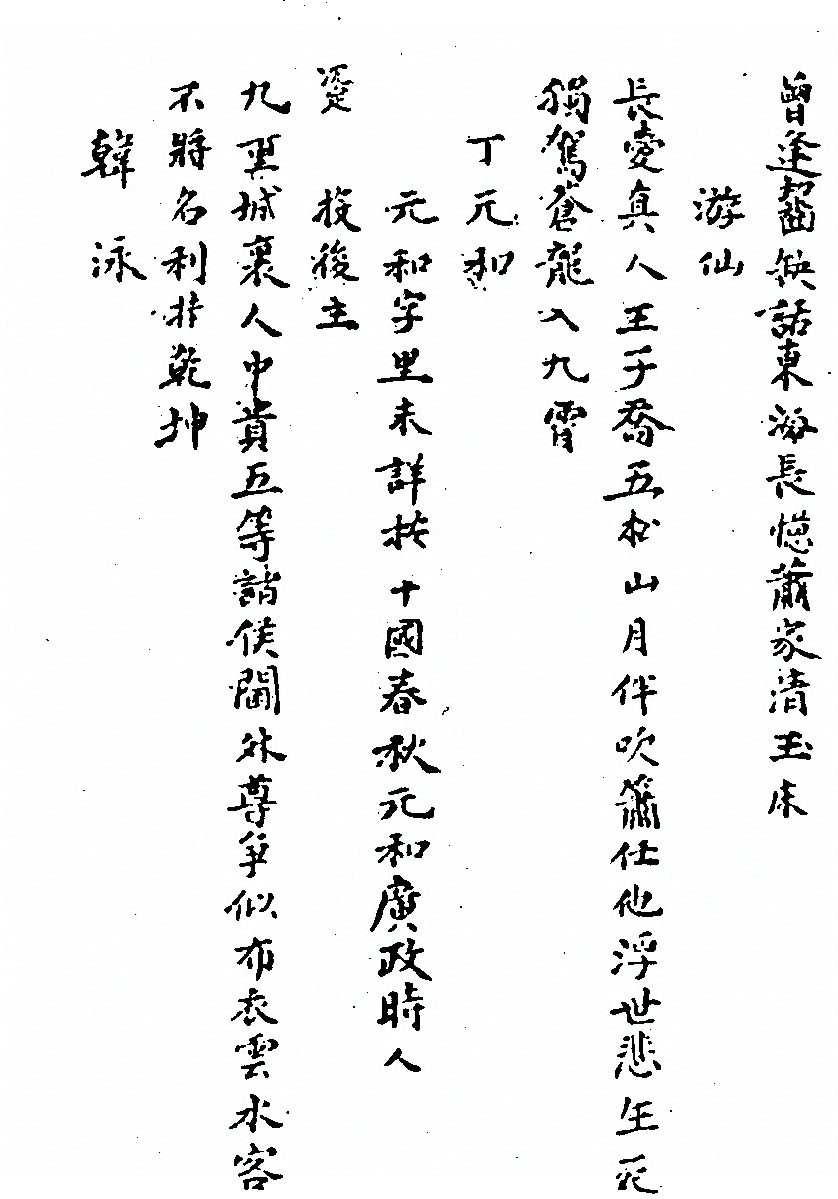 曾逢齧缺話東海長憶蕭家清玉床
游仙
長愛真人王子喬五松山月伴吹簫任他浮世悲生死
獨駕蒼龍入九霄
丁元和
元和字里未詳按十國春秋元和廣政時人
投後主
九重城裏人中貴五等諸侯閫外尊爭似布衣雲水客
不將名利挂乾坤
韓泳